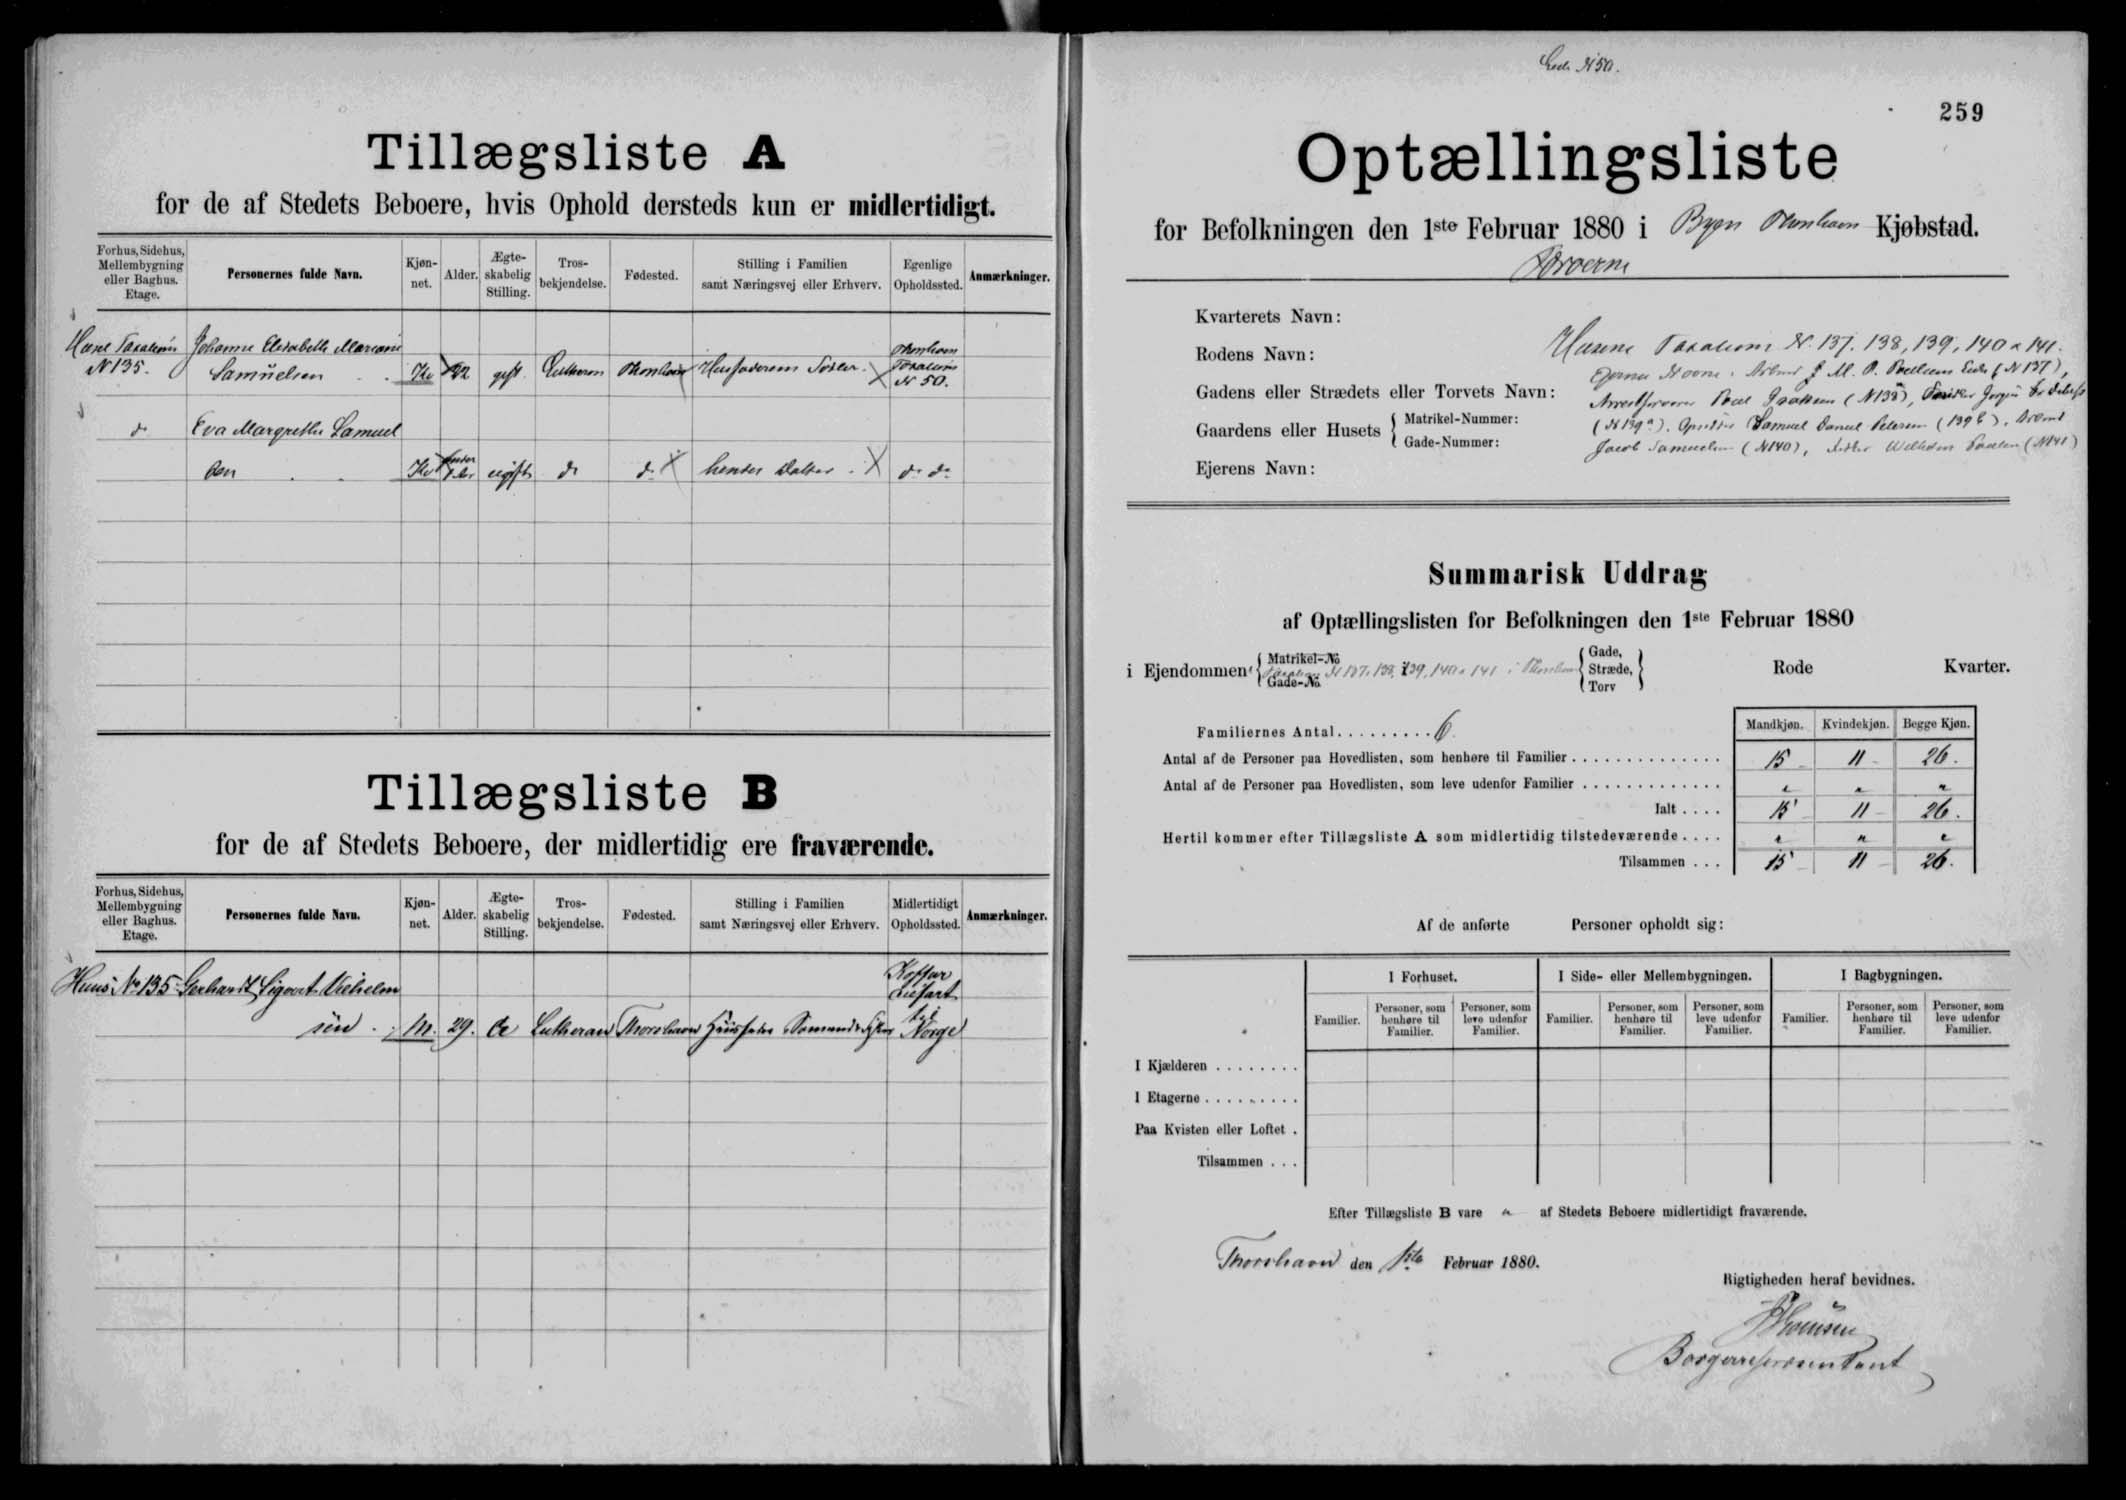 Tillægsliste A
for de af Stedets Beboere, hvis Ophold dersteds kun er midlertidigt.
Forhus, Sidehus, Mellembygning eller Baghus. Etage.
Personernes fulde Navn.
Kjøn- net.
Alder.
Ægte- skabelig Stilling.
Tros- bekjendelse.
Fødested.
Stilling i Familien samt Næringsvej eller Erhverv.
Egenlige Opholdssted.
Anmærkninger.
Johanne Elisabeth Mariane
Thorshavn
N 135. Samuelsen Kv 22 gift Lutheran Thorshavn Husfaderens Søster N 50.
do Eva Margrethe Samuel
sen Kv ugift do do hendes Datter do do
Tillægsliste B
for de af Stedets Beboere, der midlertidig ere fraværende.
Forhus, Sidehus, Mellembygning eller Baghus. Etage.
Personernes fulde Navn.
Kjøn- net.
Alder.
Ægte- skabelig Stilling.
Tros- bekjendelse.
Fødested.
Stilling i Familien samt Næringsvej eller Erhverv.
Midlertidigt Opholdssted.
Anmærkninger.
Huus No 135 Gerhardt Sigvart Vilhelm
sen M. 29. Lutheran Thorshavn Huusfader Norge
N 50.
259
Optællingsliste
for Befolkningen den 1ste Februar 1880 i Byen Thorshavn Kjøbstad.
Færøerne
Kvarterets Navn:
Rodens Navn:
Gadens eller Strædets eller Torvets Navn:
Gaardens eller Husets { Matrikel-Nummer:
Gade-Nummer:
Ejerens Navn:
Husene Taxations N. 137, 138, 139, 140 & 141.
Ejernes Navne: (N 137),
(N 138),
(N 139a), Samuel Daniel Petersen (139b),
Jacob Samuelsen (N 140), (N 141)
Summarisk Uddrag
af Optællingslisten for Befolkningen den 1ste Februar 1880
i Ejendommen { Matrikel-No Gade-No Taxations N 137, 138, 139, 140 & 141 i Thorshavn { Gade, Stræde, Torv } Rode Kvarter.
Mandkjøn. Kvindekjøn. Begge Kjøn.
Familiernes Antal......... 6
Antal af de Personer paa Hovedlisten, som henhøre til Familier.............. 15 11 26.
Antal af de Personer paa Hovedlisten, som leve udenfor Familier............. " " "
Ialt.... 15 11 26.
Hertil kommer efter Tillægsliste A som midlertidig tilstedeværende.... " " "
Tilsammen... 15 11 26.
Af de anførte Personer opholdt sig:
I Forhuset. I Side- eller Mellembygningen. I Bagbygningen.
Familier. Personer, som henhøre til Familier. Personer, som leve udenfor Familier. Familier. Personer, som henhøre til Familier. Personer, som leve udenfor Familier. Familier. Personer, som henhøre til Familier. Personer, som leve udenfor Familier.
I Kjælderen........
I Etagerne.........
Paa Kvisten eller Loftet.
Tilsammen...
Efter Tillægsliste B vare " af Stedets Beboere midlertidigt fraværende.
Thorshavn den 1ste Februar 1880.
Rigtigheden heraf bevidnes.
Borgerrepræsentant